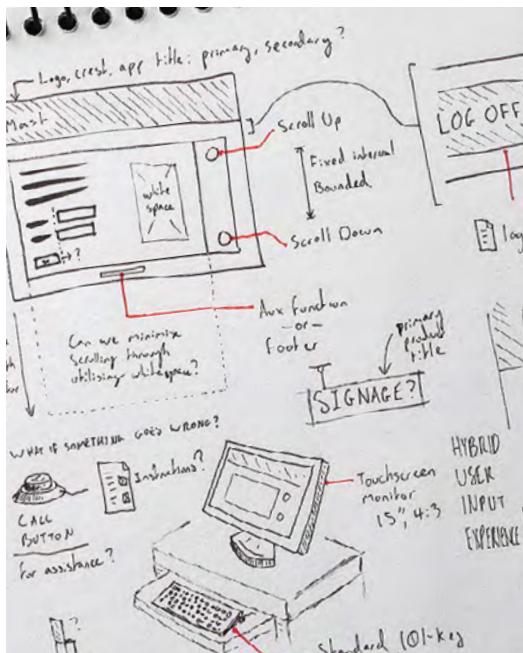 Logo, crest, app title: primary, secondary?
Mast
Scroll Up
Fixed interval
Bounded
Scroll Down
white
space
?
Aux function
-or-
footer
Can we minimise
scrolling through
utilising whitespace?
LOG OFF
primary
product
title
SIGNAGE?
WHAT IF SOMETHING GOES WRONG?
Instructions?
CALL
BUTTON
for assistance?
Touchscreen
monitor
15", 4:3
HYBRID
USER
INPUT
EXPERIENCE
?
Standard 101-key